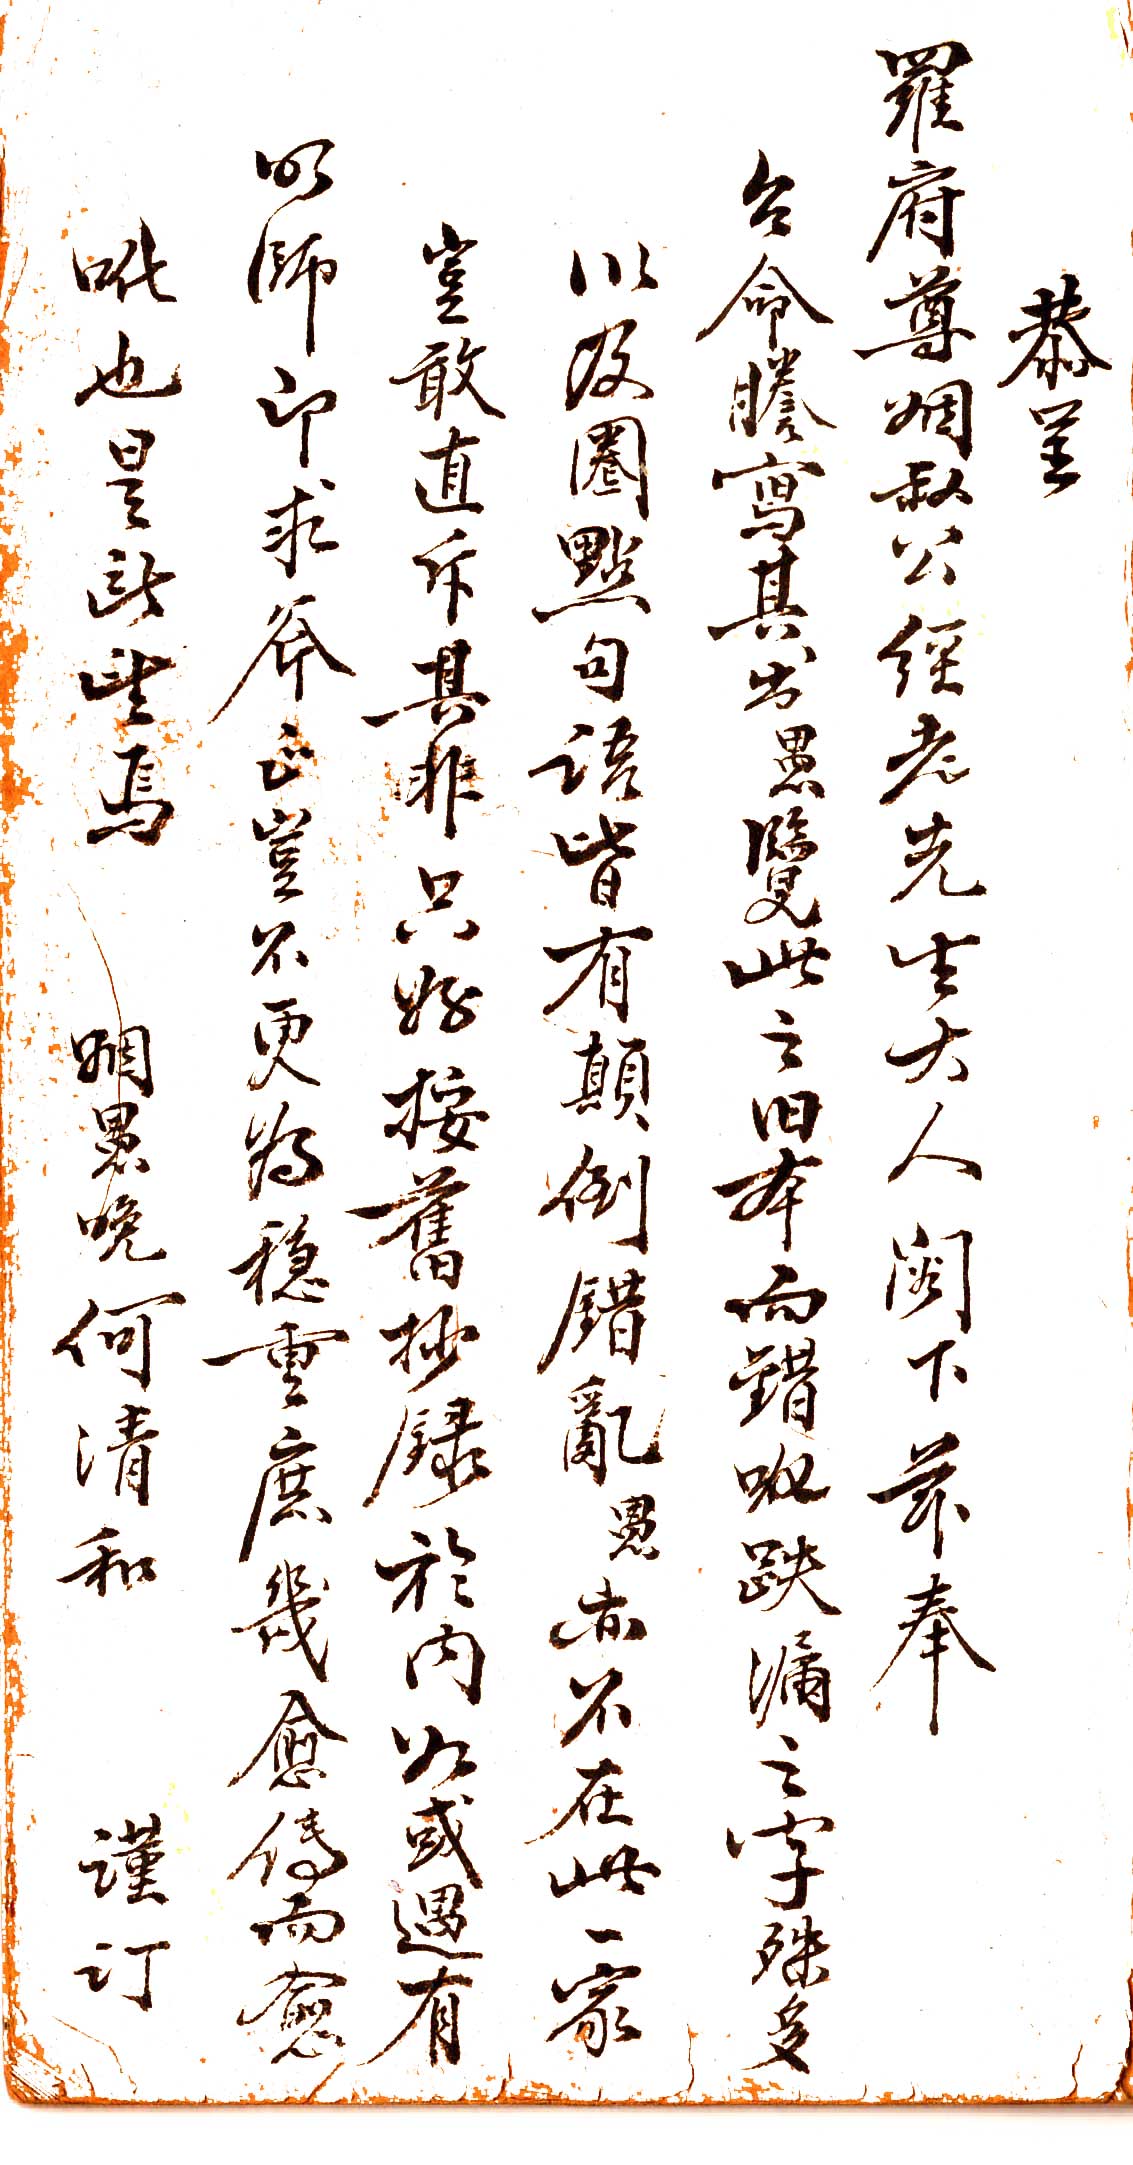 恭呈
羅府尊姻叔公經老先生大人閣下茲奉
台命謄寫其书愚覽此之旧本而錯訛跌漏之字殊多
以及圈點句语皆有顛倒錯亂愚亦不在此一家
豈敢直斥其非只好按舊抄録於內如或遇有
明師即求斧正豈不更為穏重庶幾愈傳而愈
吪也是所望焉
姻愚晚何清和 謹订